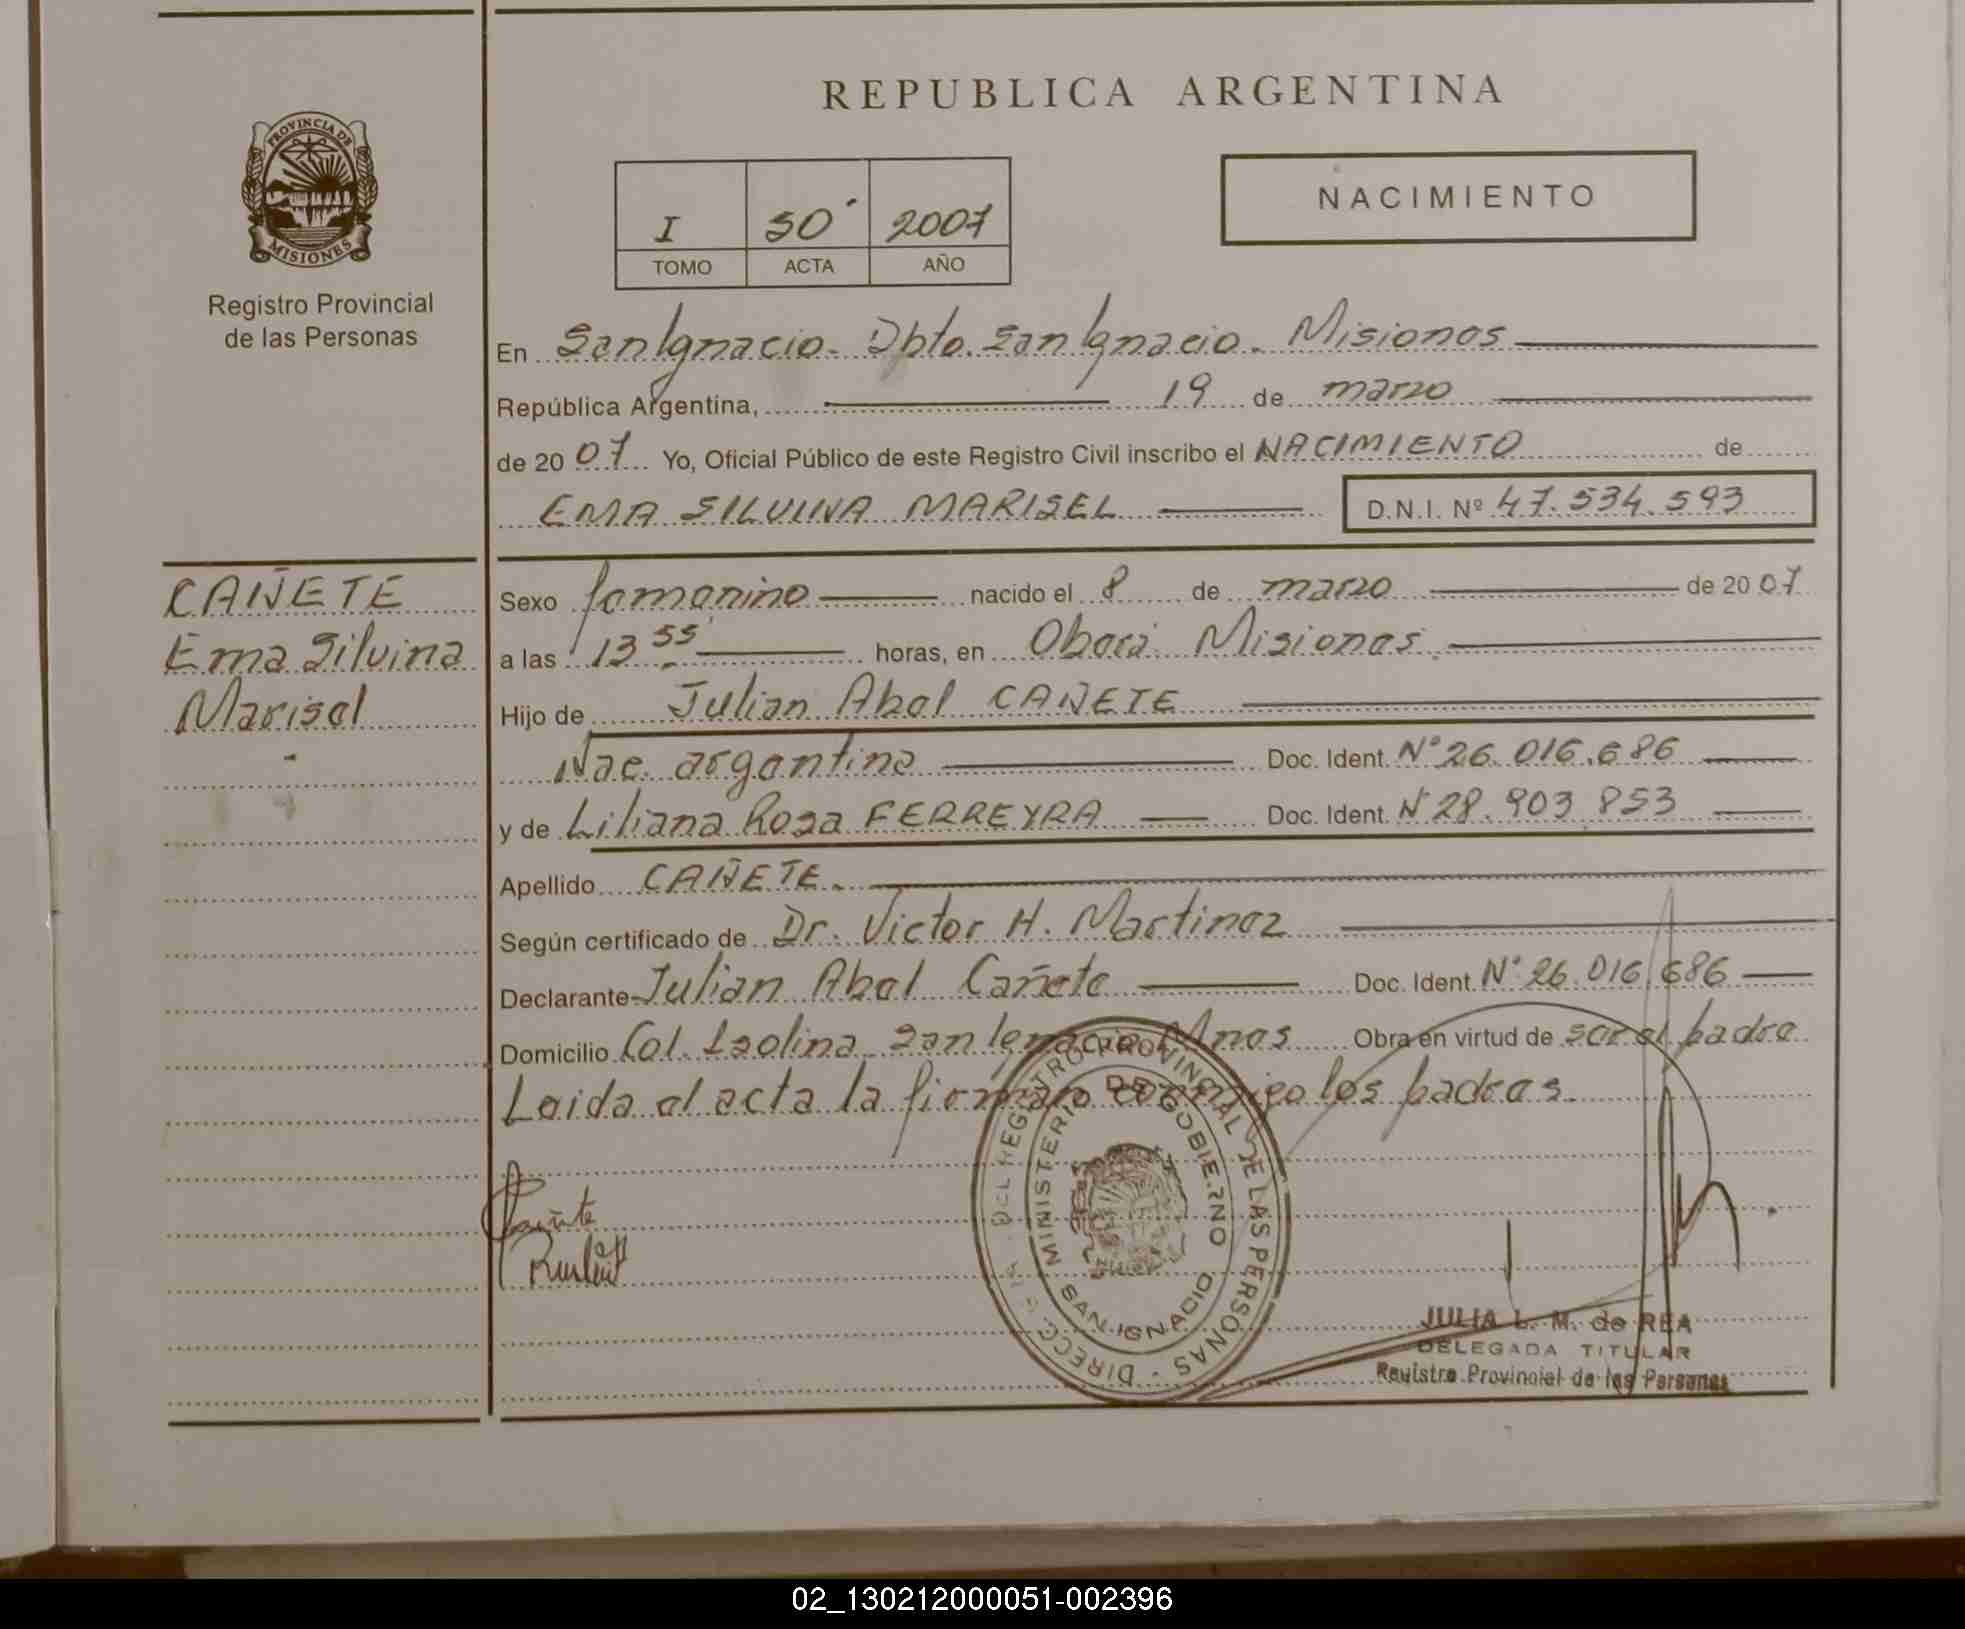 REPUBLICA ARGENTINA
PROVINCIA DE
MISIONES
Registro Provincial
de las Personas
I 50 2007
TOMO ACTA AÑO
NACIMIENTO
En San Ignacio. Dpto. San Ignacio. Misiones
República Argentina, 19 de marzo
de 2007 Yo, Oficial Público de este Registro Civil inscribo el NACIMIENTO de
EMA SILVINA MARISEL D.N.I. Nº 47.534.593
CAÑETE
Ema Silvina
Marisel
Sexo femenino nacido el 8 de marzo de 2007
a las 13 55 horas, en Oberá Misiones.
Hijo de Julian Abel CAÑETE
Nac. argentina Doc. Ident. Nº 26.016.686
y de Liliana Rosa FERREYRA Doc. Ident. Nº 28.903.853
Apellido CAÑETE.
Según certificado de Dr. Victor H. Martinez
Declarante Julian Abel Cañete Doc. Ident. Nº 26.016.686
Domicilio Col. Isolina San Ignacio Mnes Obra en virtud de ser el padre
Leida el acta la firman conmigo los padres.
Cañete
DEL REGISTRO PROVINCIAL DE LAS PERSONAS - DIRECC
MINISTERIO DE GOBIERNO
SAN IGNACIO
JULIA L. M. de REA
DELEGADA TITULAR
Registro Provincial de las Personas
02_130212000051-002396